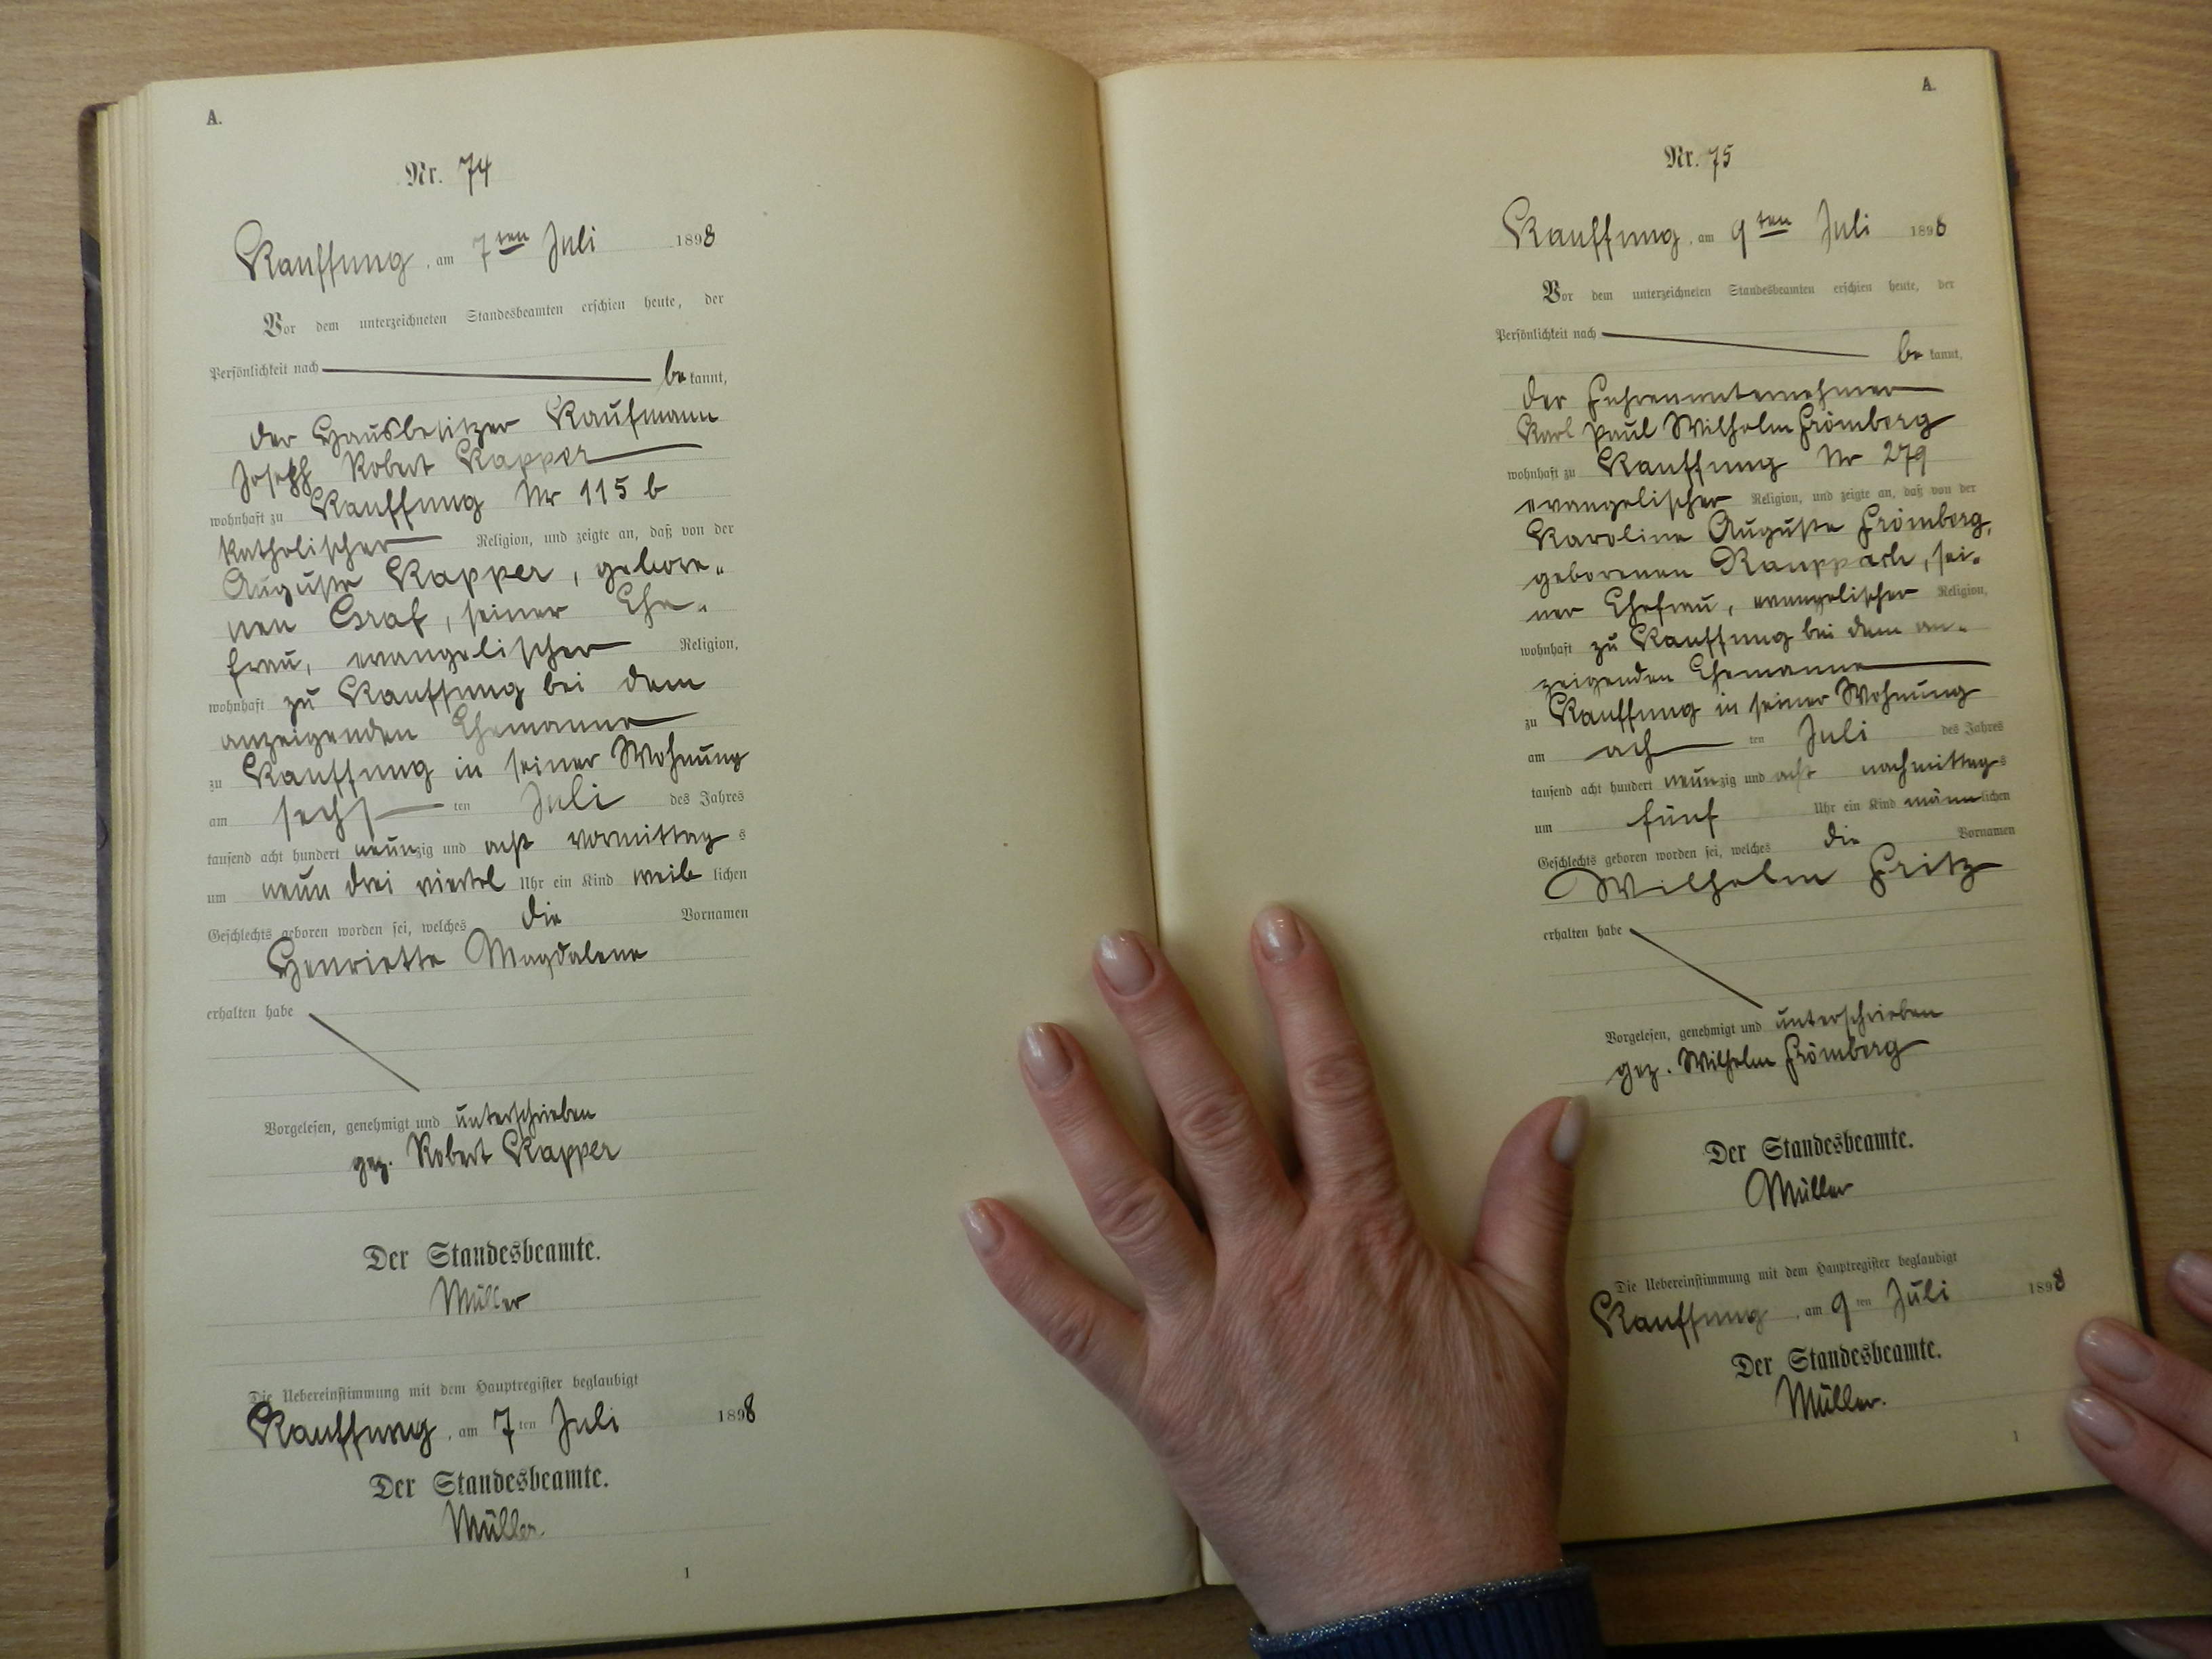 A.
Nr. 74
Kauffung, am 7ten Juli 1898
Vor dem unterzeichneten Standesbeamten erschien heute, der
Persönlichkeit nach bekannt,
der Hausbesitzer Kaufmann
Joseph Robert Kapper
wohnhaft zu Kauffung Nr 115 b
katholischer Religion, und zeigte an, daß von der
Auguste Kapper, gebore-
nen Graf, seiner Ehe-
frau, evangelischer Religion,
wohnhaft zu Kauffung bei dem
anzeigenden Ehemanne
zu Kauffung in seiner Wohnung
am sechsten Juli des Jahres
tausend acht hundert neunzig und acht vormittags
um neun drei viertel Uhr ein Kind weiblichen
Geschlechts geboren worden sei, welches die Vornamen
Henriette Magdalene
erhalten habe
Vorgelesen, genehmigt und unterschrieben
gez. Robert Kapper
Der Standesbeamte.
Müller
Die Uebereinstimmung mit dem Hauptregister beglaubigt
Kauffung, am 7ten Juli 1898
Der Standesbeamte.
Müller.
1
A.
Nr. 75
Kauffung, am 9ten Juli 1898
Vor dem unterzeichneten Standesbeamten erschien heute, der
Persönlichkeit nach
bekannt,
der Fuhrenunternehmer
Karl Paul Wilhelm Frömberg
wohnhaft zu Kauffung Nr 279
evangelischer Religion, und zeigte an, daß von der
Karoline Auguste Frömberg,
geborenen Raupach, sei-
ner Ehefrau, evangelischer Religion,
wohnhaft zu Kauffung bei dem an-
zeigenden Ehemanne
zu Kauffung in seiner Wohnung
am achten Juli des Jahres
tausend acht hundert neunzig und acht nachmittags
um fünf Uhr ein Kind männlichen
Geschlechts geboren worden sei, welches die Vornamen
Wilhelm Fritz
erhalten habe
Vorgelesen, genehmigt und unterschrieben
gez. Wilhelm Frömberg
Der Standesbeamte.
Müller
Die Uebereinstimmung mit dem Hauptregister beglaubigt
Kauffung, am 9ten Juli 1898
Der Standesbeamte.
Müller.
1